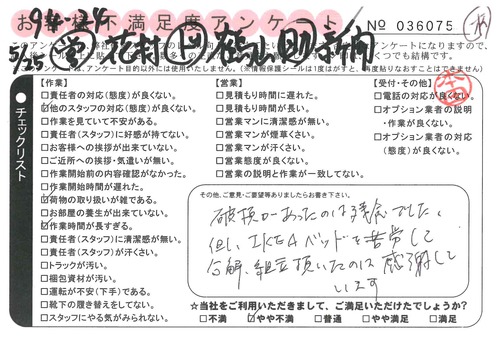 お客様不満足度アンケート
No 036075
94-24
5/25
チェックリスト
【作業】
□責任者の対応(態度)が良くない。
☑他のスタッフの対応(態度)が良くない。
□作業を見ていて不安がある。
□責任者(スタッフ)に好感が持てない。
□お客様への挨拶が出来ていない。
□ご近所への挨拶・気遣いが無い。
□作業開始前の内容確認がなかった。
□作業開始時間が遅れた。
☑荷物の取り扱いが雑である。
□お部屋の養生が出来ていない。
☑作業時間が長すぎる。
□責任者(スタッフ)に清潔感が無い。
□責任者(スタッフ)が汗くさい。
□トラックが汚い。
□梱包資材が汚い。
□運転が不安(下手)である。
□靴下の履き替えをしてない。
□スタッフにやる気がみられない。
【営業】
□見積もり時間に遅れた。
□見積もり時間が長い。
□営業マンに清潔感が無い。
□営業マンが煙草くさい。
□営業マンが汗くさい。
□営業態度が良くない。
□営業の説明と作業が一致してない。
【受付・その他】
□電話の対応が良くない。
□オプション業者の説明
・作業が良くない。
□オプション業者の対応
(態度)が良くない。
その他、ご意見・ご要望等ありましたらお書き下さい。
破損があったのは残念でした。
但し、IKEAベッドを苦労して
分解、組立頂いたのは感謝して
います
☆当社をご利用いただきまして、ご満足いただけたでしょうか?
□不満 ☑やや不満 □普通 □やや満足 □満足